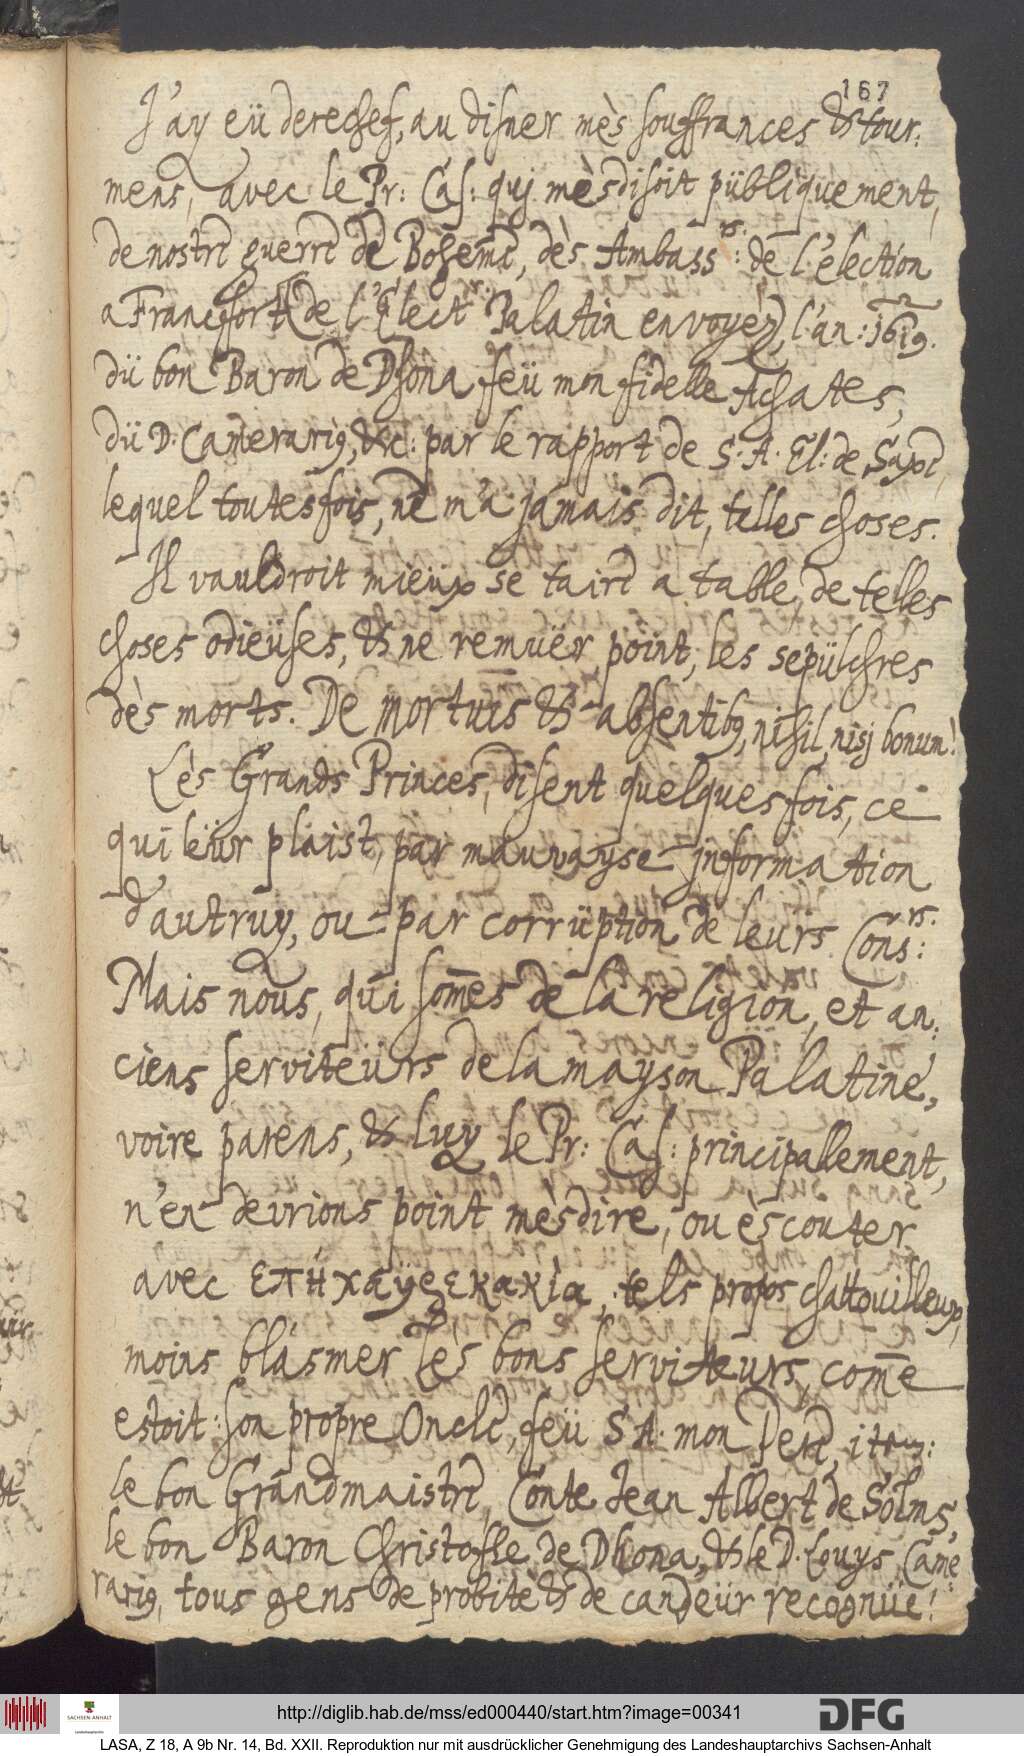 167
J'ay eü derechef, au disner mès souffrances & tour:
mens, avec le Pr: Cas: quj mèsdisoit pübliquement,
de nostre guerre de Boheme, dès Ambass:rs. de l'élection
a Francfort (de l'Elect:r. Palatin envoyèz) l'an: 1619.
dü bon Baron de Dhona feü mon fidelle Achates,
dü D. Camerarig, &c: par le rapport de S. A. El: de Saxe,
lequel toutesfois, ne m'a jamais dit, telles choses.
Il vauldroit mieüx se taire a table, de telles
choses odieüses, & ne remuër point, les sepülchres
dès morts. De mortuis & absentibg, nihil, nisj bonum!
Lès Grands Princes, disent quelquesfois, ce
qui leür plaist, par mauvayse jnformation
d'autruy, ou par corrüption de leurs Cons:rs.
Mais nous, qui som̄es de la religion, et an:
ciens serviteürs de la mayson Palatine,
voire parens, & luy le Pr: Cas: principallement,
n'en devrions point mèsdire, ou èscouter
avec επηχαιρεκακία, tels propos chattouilleux,
moins blásmer lès bons serviteurs, com̄e
estoit: son propre Oncle, feü S A. mon Pere, item:
le bon Grandmaistre, Conte Jean Albert de Solms,
le bon Baron Christofle de Dhona, & le D. Louys Came:
rarig, tous gens de probitè & de candeür recognüe!
http://diglib.hab.de/mss/ed000440/start.htm?image=00341
SACHSEN-ANHALT
Landeshauptarchiv
DFG
LASA, Z 18, A 9b Nr. 14, Bd. XXII. Reproduktion nur mit ausdrücklicher Genehmigung des Landeshauptarchivs Sachsen-Anhalt